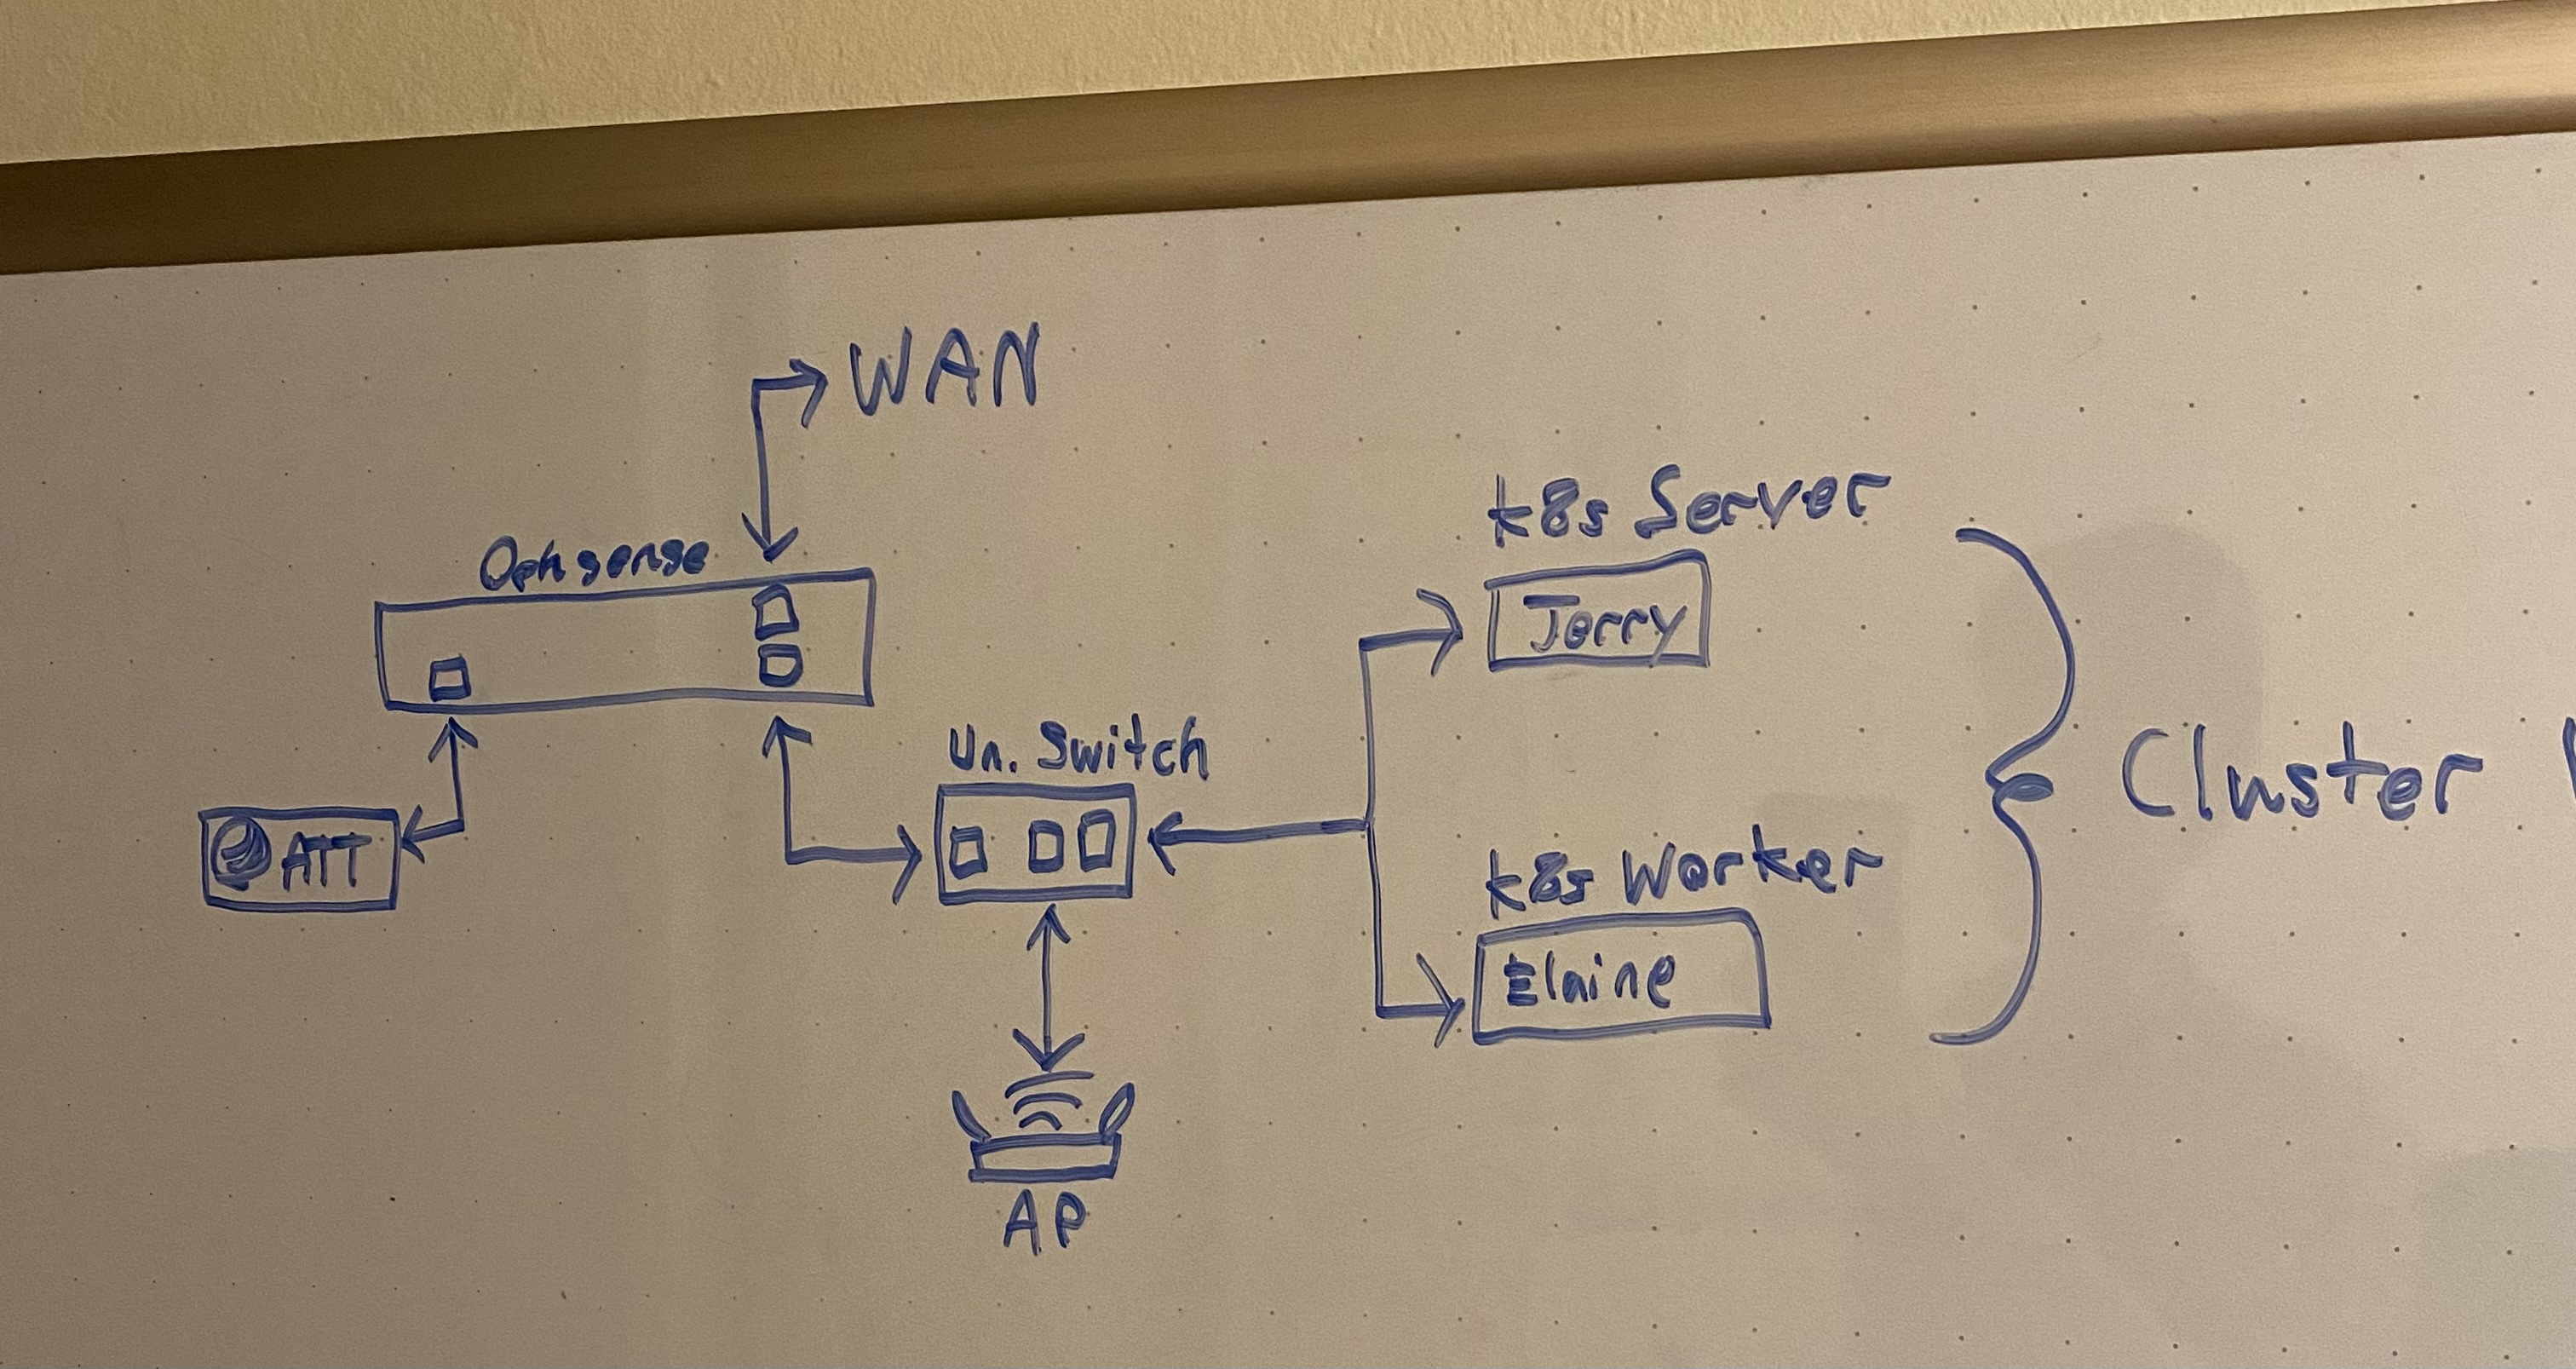 WAN
Opnsense
ATT
Un. Switch
AP
k8s Server
Jerry
k8s Worker
Elaine
Cluster